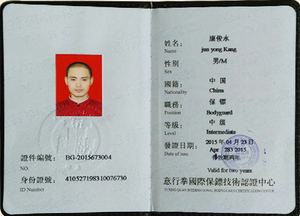 姓名: 康俊水
Name jun yong Kang
性別: 男/M
Sex
國籍: 中国
Nationality China
職務: 保鏢
Position Bodyguard
等級: 中級
Level Intermediate
發證日期: 2015年04月23日
Date of issue Apr
Valid for two years
證件編號: BG-2015673004
NO.
身份證號: 410527198310076730
ID Number
意行拳國際保鏢技術認證中心